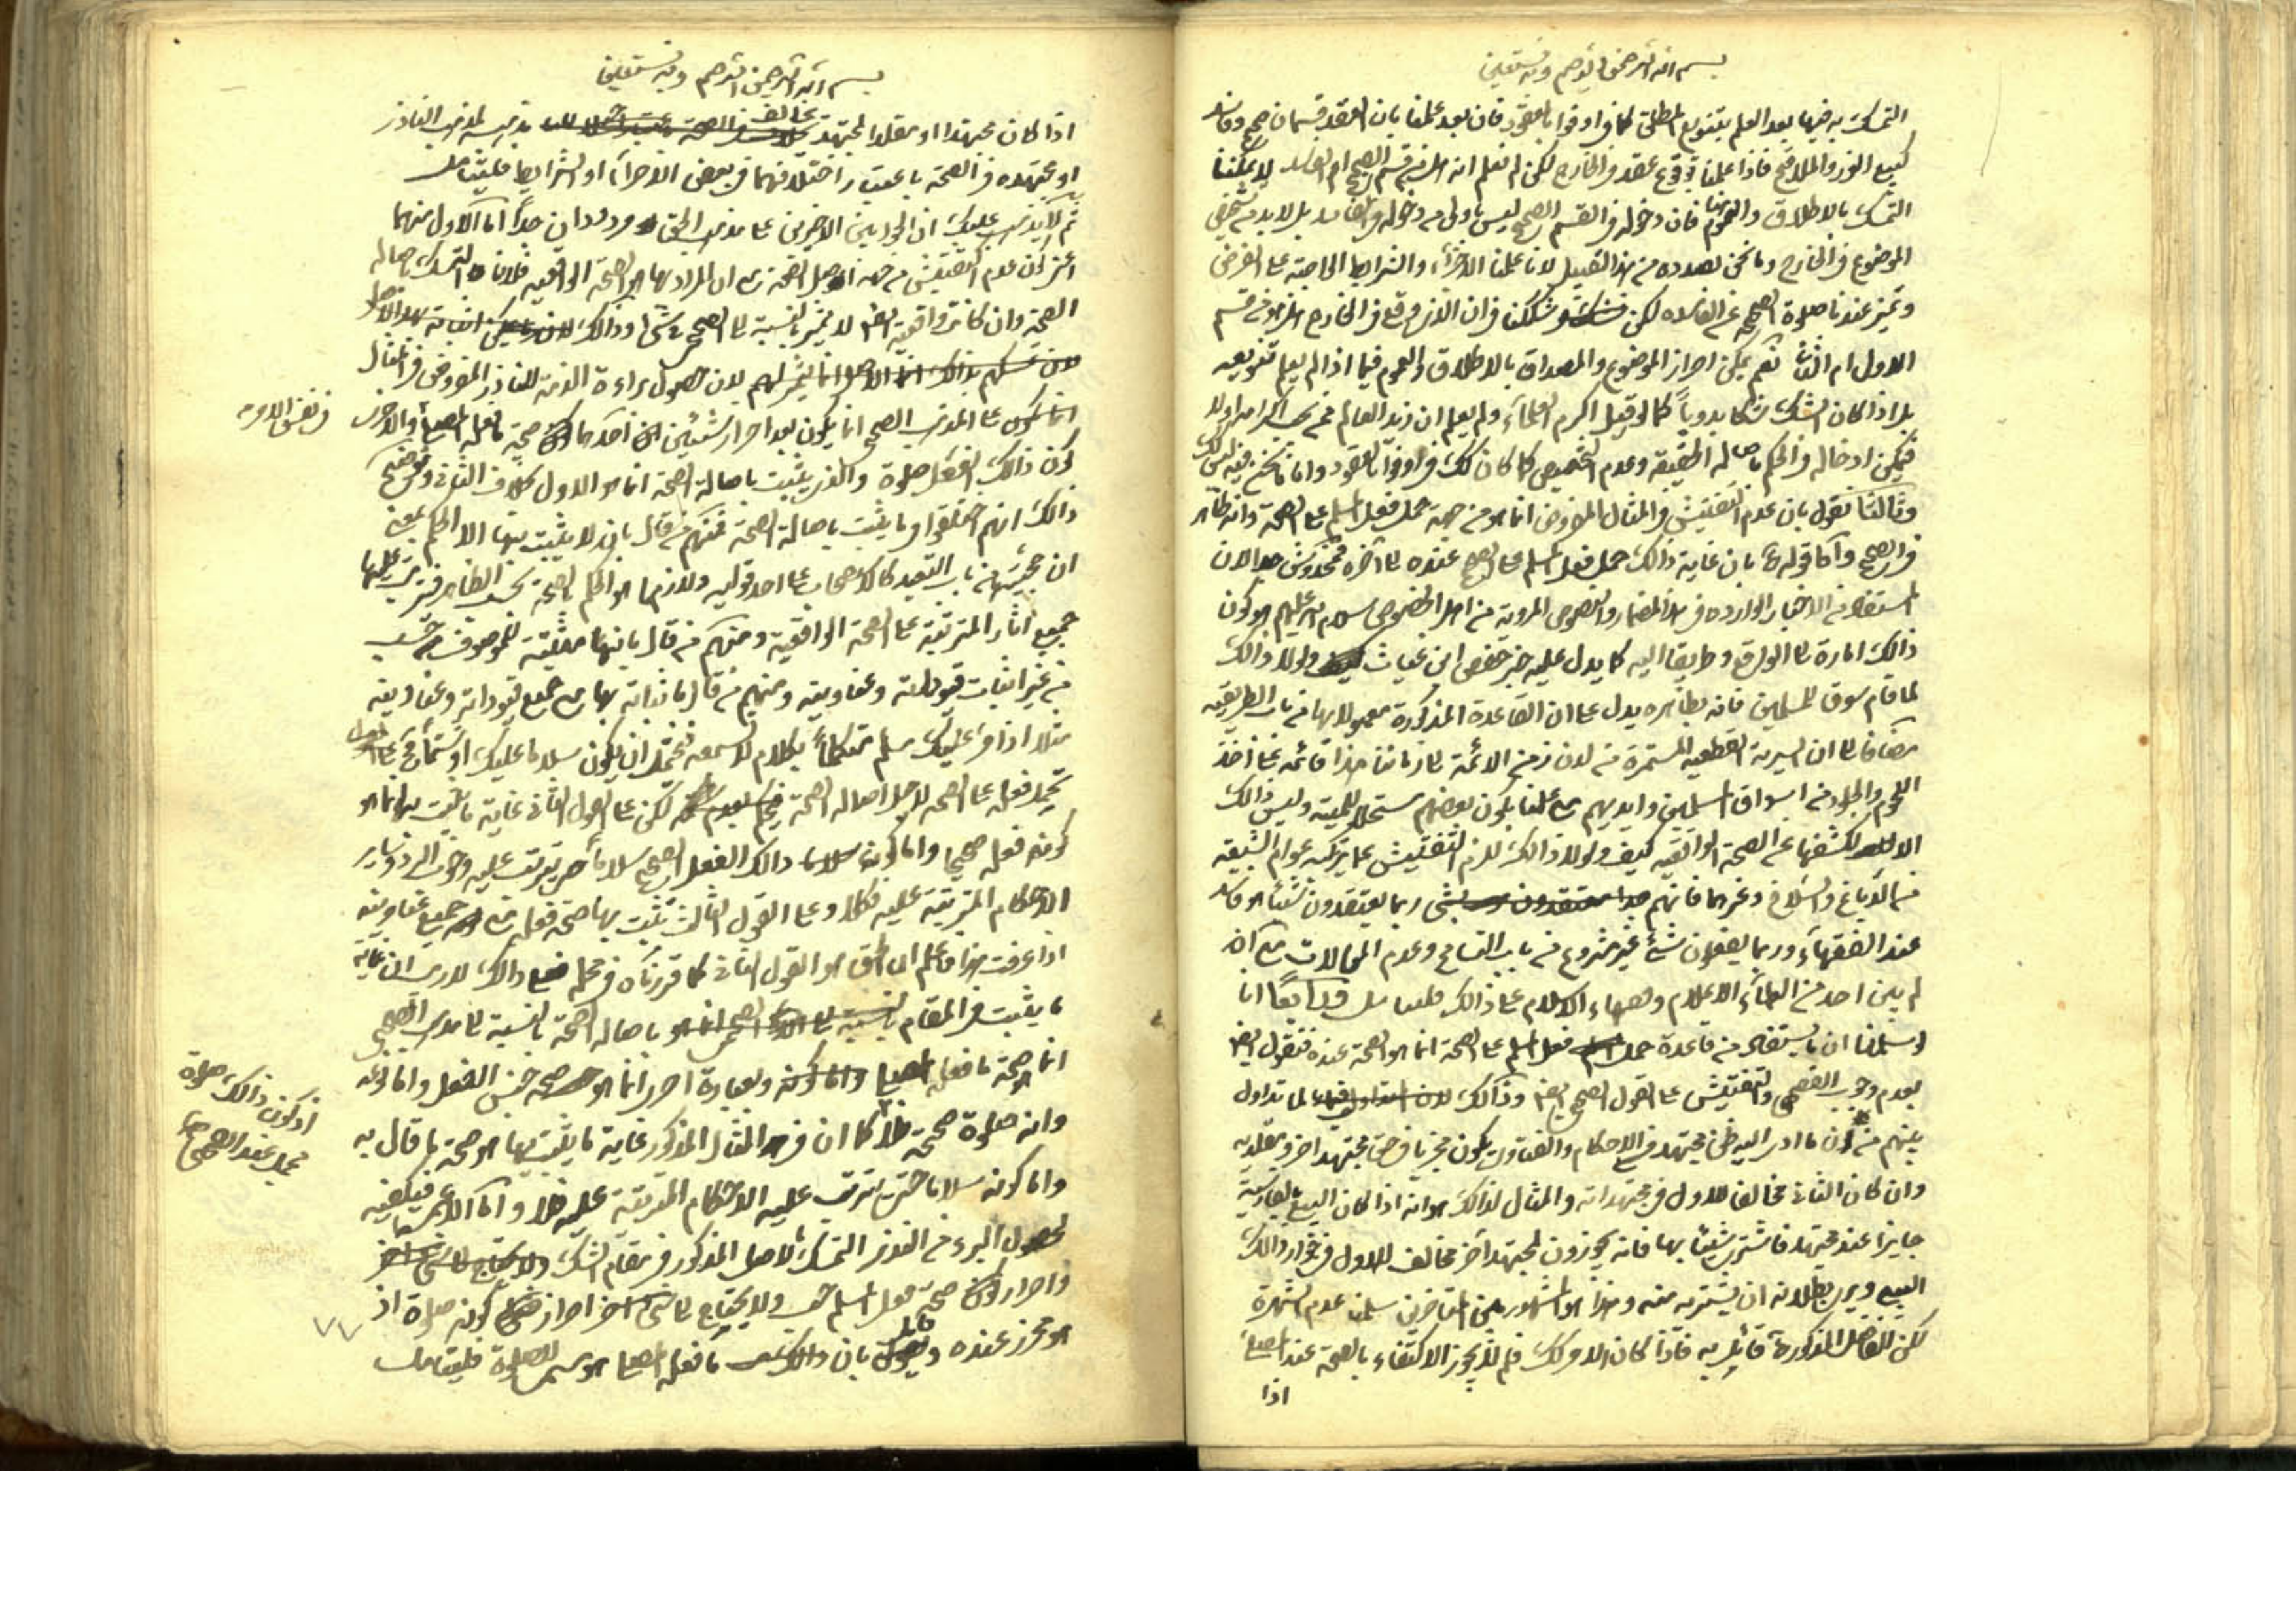 بسم الله الرحمن الرحيم وبه نستعين
التمسك به فيها بعد العلم بتنويع المطلق كما في اوفوا بالعقود فان بعد علمنا بان العقد قسمان صحيح وفاسد
كبيع الغرر والملاقيح فاذا علمنا بوقوع عقد في الخارج لكن لم نعلم انه من قسم الصحيح او الفاسد لا يمكننا
التمسك بالاطلاق والعموم فان دخوله في القسم الصحيح ليس باولى من دخوله في الفاسد بل لا بد من تشخيص
الموضوع في الخارج وما نحن بصدده من هذا القبيل لانا علمنا الاجزاء والشرايط الى
وتميز عندنا صلوة الصحيحة عن الفاسدة لكن شككنا في ان الذي وقع في الخارج هل هو من قسم
الاول ام الثاني نعم يمكن احراز الموضوع والمصداق بالاطلاق والعموم فيما اذا لم يعلم تنويعه
بل اذا كان الشك شكا بدويا كما لو قيل اكرم العلماء ولم يعلم ان زيد العالم اكرامه اولا
فيمكن ادخاله في الحكم باصالة الحقيقة وعدم التخصيص كما كان كك في اوفوا بالعقود واما ما نحن فيه ليس كك
وثالثا نقول بان عدم التفتيش في المثال المفروض انما هو من جهة حمل فعل المسلم على الصحة وانه ظاهر
في الصحيح واما قوله بان غاية ذالك حمل فعل المسلم على الصحيح عنده الى آخره فمخدوش جدا لان
المستفاد من الاخبار الواردة في هذا المضمار والنصوص المروية من اهل الخصوص سلام الله عليهم هو كون
ذالك امارة الى الواقع وطريقا اليه كما يدل عليه خبر حفص ابن غياث ولولا ذالك
لما قام سوق للمسلمين فانه بظاهره يدل على ان القاعدة المذكورة معمولا بها من باب الطريقية
مضافا الى ان السيرة القطعية المستمرة من لدن زمن الائمة الى زماننا هذا قائمة على اخذ
اللحوم والجلود من اسواق المسلمين وايديهم مع علمنا بكون بعضهم مستحلا للميتة وليس ذالك
الا لكشفها عن الصحة الواقعية كيف ولولا ذالك للزم التفتيش عما يرتكبه عوام الشيعة
من الدباغ والسلاخ وغيرهما فانهم ربما يعتقدون شيئا هو فاسد
عند الفقهاء وربما يفعلون شيئا غير مشروع من باب التسامح وعدم المبالات مع انه
لم يبن احد من العلماء الاعلام وفقهاء الاسلام على ذالك فليتامل ورابعا انا
لو سلمنا ان ما يستفاد من قاعدة حمل فعل المسلم على الصحة انما هو الصحة عنده فنقول ايضا
بعدم وجوب الفحص والتفتيش على القول الصحيح ايضا وذالك لما تداول
بينهم من كون ما ادى اليه ظن مجتهد في الاحكام والفتاوى يكون مجزيا في حق مجتهد اخر ومقلديه
وان كان الثاني مخالفا للاول في مجتهداته والمثال لذالك هو انه اذا كان البيع بالفارسية
جايزا عند مجتهد فاشترى شيئا بها فانه يجوزون لمجتهد آخر مخالف للاول في جواز ذالك
البيع ويرى بطلانه ان يشتريه منه وهذا هو المشهور بين المتاخرين سلمنا عدم الشهرة
لكن الفاضل المذكور قائل به فاذا كان الامر كك فلم لا يجوز الاكتفاء بالصحة عند المصلي
اذا
بسم الله الرحمن الرحيم وبه نستعين
اذا كان مجتهدا او مقلدا لمجتهد مخالف مذهبه لمذهب الناذر
او مجتهده في الصحة باعتبار اختلافهما في بعض الاجزاء او الشرايط فليتامل
ثم لا يذهب عليك ان الجوابين الاخيرين على مذهب الحق مردودان جدا اما الاول منهما
اعني كون عدم التفتيش من جهة اصل الصحة مع ان المراد بها هو الصحة الواقعية فلان التمسك باصالة
الصحة وان كانت واقعية ايضا لا يثمر بالنسبة الى الصحيحي شيئا وذالك
لان حصول براءة الذمة للناذر المفروض في المثال
انما يكون على المذهب الصحيح انما يكون بعد احراز شيئين احدهما صحة ما فعله المصلي والاخرى
كون ذالك الفعل صلوة والذي يثبت باصالة الصحة انما هو الاول بخلاف الثاني وتوضيح
ذالك انهم اختلفوا فيما يثبت باصالة الصحة فمنهم من قال بان لا يثبت بها الا الحكم بمعنى
ان حجيتها من باب التعبد كالاستصحاب على احد قوليه ولازمها هو الحكم بالصحة بحسب الظاهر فترتب عليها
جميع آثار المترتبة على الصحة الواقعية ومنهم من قال بانها مثبتة للموصوف فحسب
من غير اثبات قيوداته وعناوينه ومنهم من قال باثباته بها مع جميع قيوداته وعناوينه
مثلا اذا مر عليك مسلم متكلما بكلام لا تسمعه فيحتمل ان يكون سلاما عليك او شتما فح على الاول
تحمل فعله على الصحة لاجل اصالة الصحة لكن على القول الثاني غاية ما يثبت بها انما هو
كونه فعله صحيحا واما كونه ذالك الفعل الصحيح سلاما حتى يترتب عليه وجوب الرد وساير
الاحكام المترتبة عليه فكلا وعلى القول الثالث يثبت بها صحة فعله مع جميع عناوينه
اذا عرفت هذا فاعلم ان الحق هو القول الثاني كما قررناه في محله فعلى ذالك لا ريب ان غاية
ما يثبت في المقام باصالة الصحة بالنسبة الى مذهب الصحيحي
انما هو صحة ما فعله المصلي وبعبارة اخرى انما هو صحة جنس الفعل واما كونه
وانه صلوة صحيحة فلا كما ان في المثال المذكور غاية ما يثبت بها هو صحة ما قال به
واما كونه سلاما حتى يترتب عليه الاحكام المترتبة عليه فلا واما الاعمي فيكفيه
لحصول البرء من النذر التمسك بالاصل المذكور في مقام الشك
واحراز صحة فعل المسلم فحسب ولا يحتاج الى شيء اخر احراز كونه صلوة اذ
هو محرز عنده بان ما فعله المصلي هو مسمى الصلوة فليتامل
في نفس الامر
اذ كون ذالك صلوة
محمل عند الصحيحي
٧٧